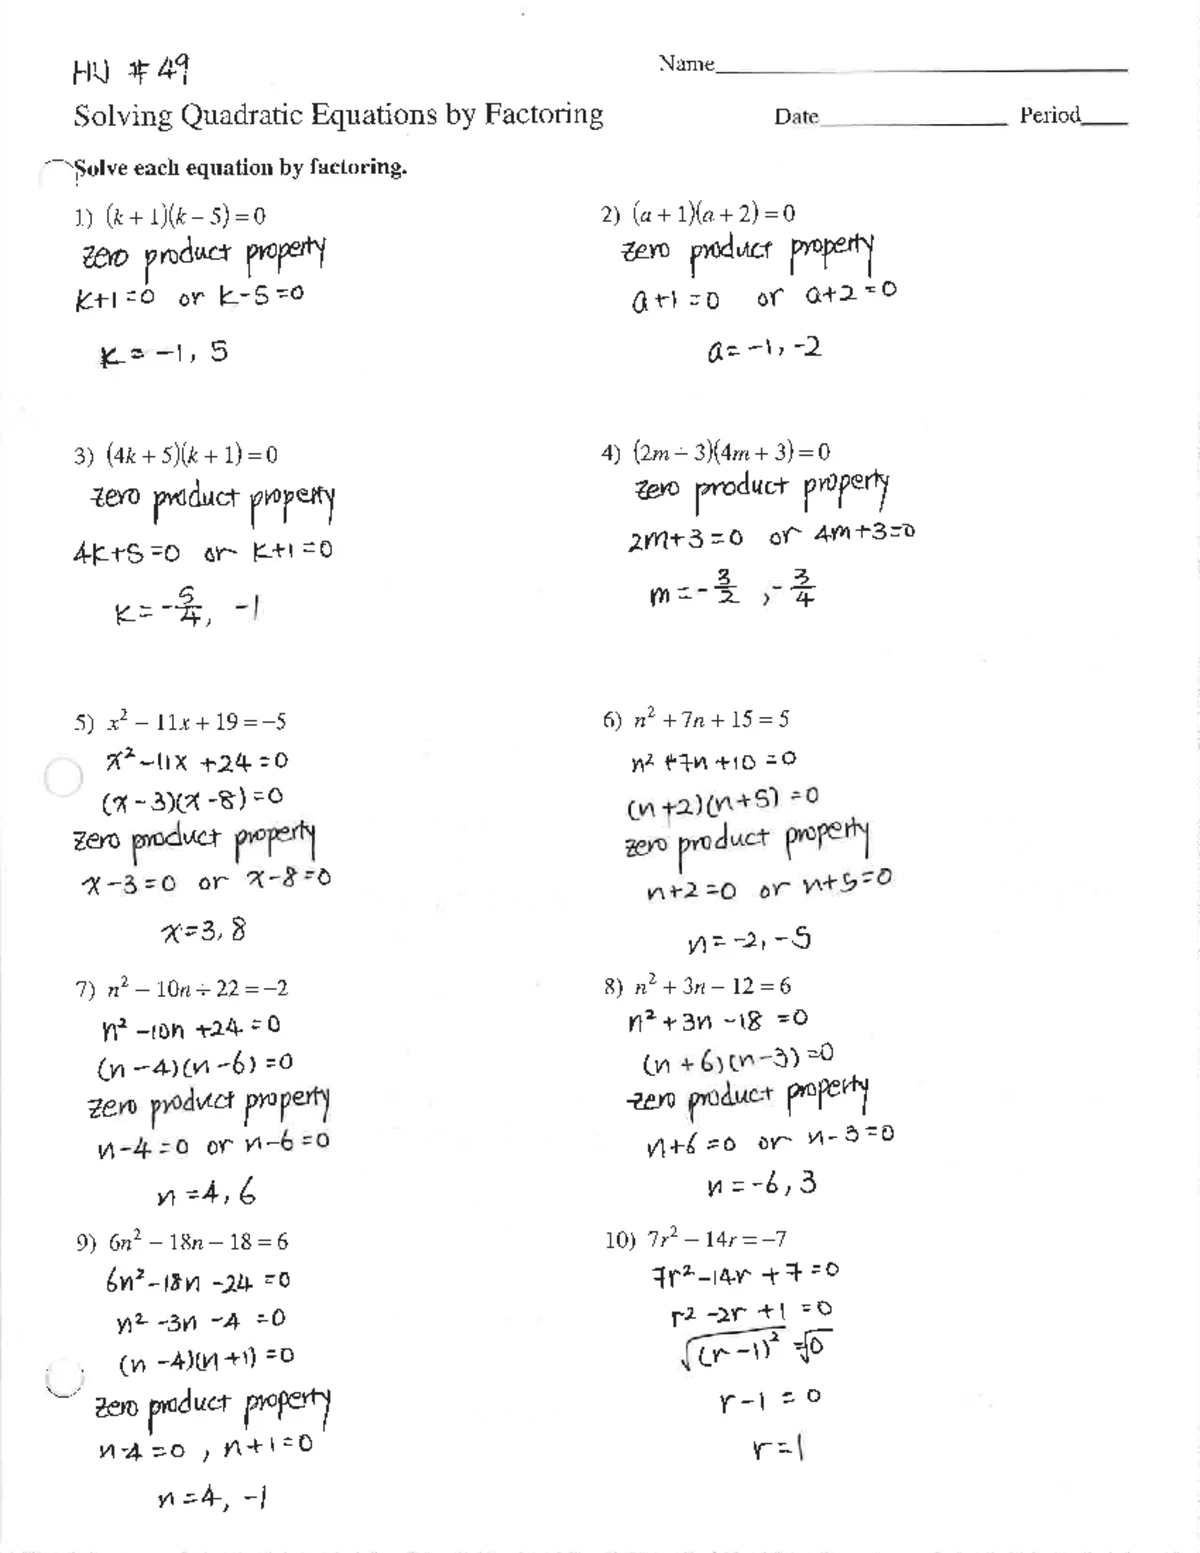 HW #49
Name
Solving Quadratic Equations by Factoring
Date Period
Solve each equation by factoring.
1) (k + 1)(k − 5) = 0
zero product property
k+1=0 or k-5=0
k = -1, 5
2) (a + 1)(a + 2) = 0
zero product property
a+1=0 or a+2=0
a= -1, -2
3) (4k + 5)(k + 1) = 0
zero product property
4k+5=0 or k+1=0
k= -5/4, -1
4) (2m + 3)(4m + 3) = 0
zero product property
2m+3=0 or 4m+3=0
m = -3/2, -3/4
5) x² − 11x + 19 = −5
x²-11x+24=0
(x-3)(x-8)=0
zero product property
x-3=0 or x-8=0
x=3, 8
6) n² + 7n + 15 = 5
n²+7n+10=0
(n+2)(n+5)=0
zero product property
n+2=0 or n+5=0
n= -2, -5
7) n² − 10n + 22 = −2
n²-10n+24=0
(n-4)(n-6)=0
zero product property
n-4=0 or n-6=0
n=4, 6
8) n² + 3n − 12 = 6
n²+3n-18=0
(n+6)(n-3)=0
zero product property
n+6=0 or n-3=0
n = -6, 3
9) 6n² − 18n − 18 = 6
6n²-18n-24=0
n²-3n-4=0
(n-4)(n+1)=0
zero product property
n-4=0, n+1=0
n=4, -1
10) 7r² − 14r = −7
7r²-14r+7=0
r²-2r+1=0
√(r-1)²=√0
r-1=0
r=1